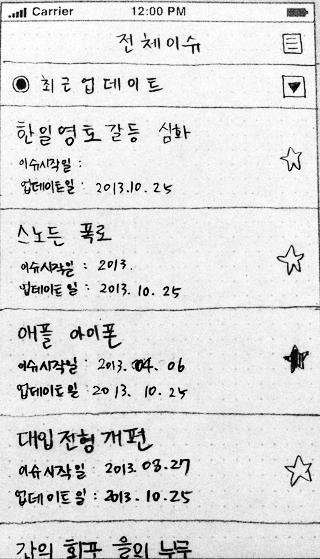 Carrier 12:00 PM
전체이슈
최근 업데이트
한일영토갈등 심화
이슈시작일 :
업데이트일 : 2013.10.25
스노든 폭로
이슈시작일 : 2013.
업데이트일 : 2013. 10. 25
애플 아이폰
이슈시작일 : 2013. 04. 06
업데이트일 : 2013. 10. 25
대입전형개편
이슈시작일 : 2013. 08.27
업데이트일 : 2013. 10.25